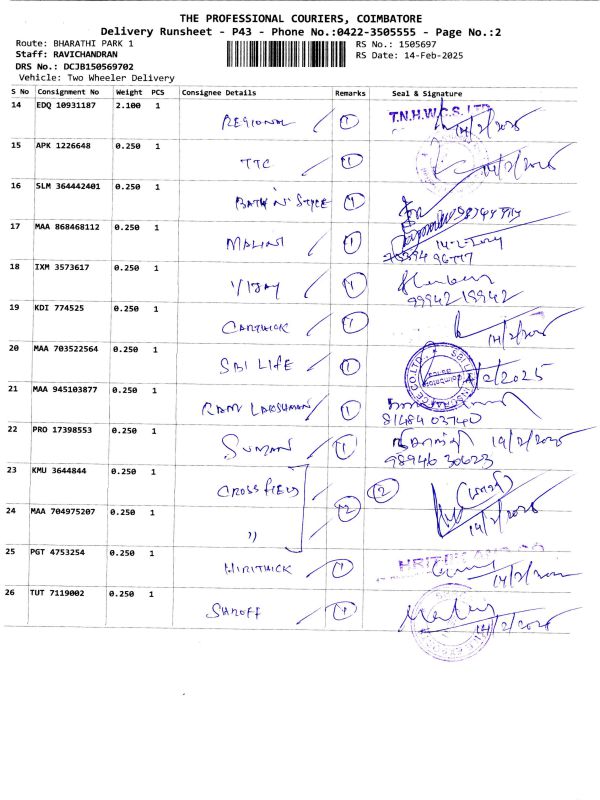 THE PROFESSIONAL COURIERS, COIMBATORE
Delivery Runsheet - P43 - Phone No.:0422-3505555 - Page No.:2
Route: BHARATHI PARK 1
RS No.: 1505697
Staff: RAVICHANDRAN
RS Date: 14-Feb-2025
DRS No.: DCJB150569702
Vehicle: Two Wheeler Delivery
S No Consignment No Weight PCS Consignee Details Remarks Seal & Signature
14 EDQ 10931187 2.100 1 REGIONAL 1 T.N.H.W.C.S. LTD 14/2/2025
15 APK 1226648 0.250 1 TTC 1 14/2/2025
16 SLM 364442401 0.250 1 BATH N STYLE 1
17 MAA 868468112 0.250 1 MALINI 1
18 IXM 3573617 0.250 1 VIJAY 1 99942 19942
19 KDI 774525 0.250 1 CARTHICK 1 14/2/2025
20 MAA 703522564 0.250 1 SBI LIFE 1 14/2/2025
21 MAA 945103877 0.250 1 RAM LAKSHMAN 1 81484 03740
22 PRO 17398553 0.250 1 SUMAN 1 14/2/2025
98946 30623
23 KMU 3644844 0.250 1 CROSSFIELD 2
24 MAA 704975207 0.250 1 " 2 14/2/2025
25 PGT 4753254 0.250 1 HIRITHICK 1
26 TUT 7119002 0.250 1 SHROFF 1 14/2/2025